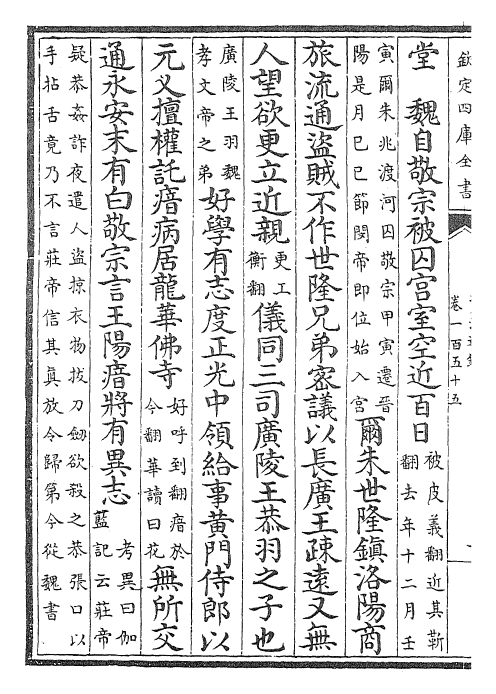 欽定四庫全書
卷一百五十五
堂　魏自敬宗被囚宮室空近百日
被皮義翻近其靳
翻去年十二月壬
寅爾朱兆渡河囚敬宗甲寅遷晉
陽是月己巳節閔帝即位始入宮
爾朱世隆鎮洛陽商
旅流通盜賊不作世隆兄弟密議以長廣王疎遠又無
人望欲更立近親
更工
衡翻
儀同三司廣陵王恭羽之子也
廣陵王羽魏
孝文帝之弟
好學有志度正光中領給事黄門侍郎以
元义擅權託瘖病居龍華佛寺
好呼到翻瘖於
今翻華讀曰花
無所交
通永安末有白敬宗言王陽瘖將有異志
考異曰伽
藍記云莊帝
疑恭姦詐夜遣人盜掠衣物拔刀劒欲殺之恭張口以
手拈舌竟乃不言莊帝信其真放令歸第今從魏書